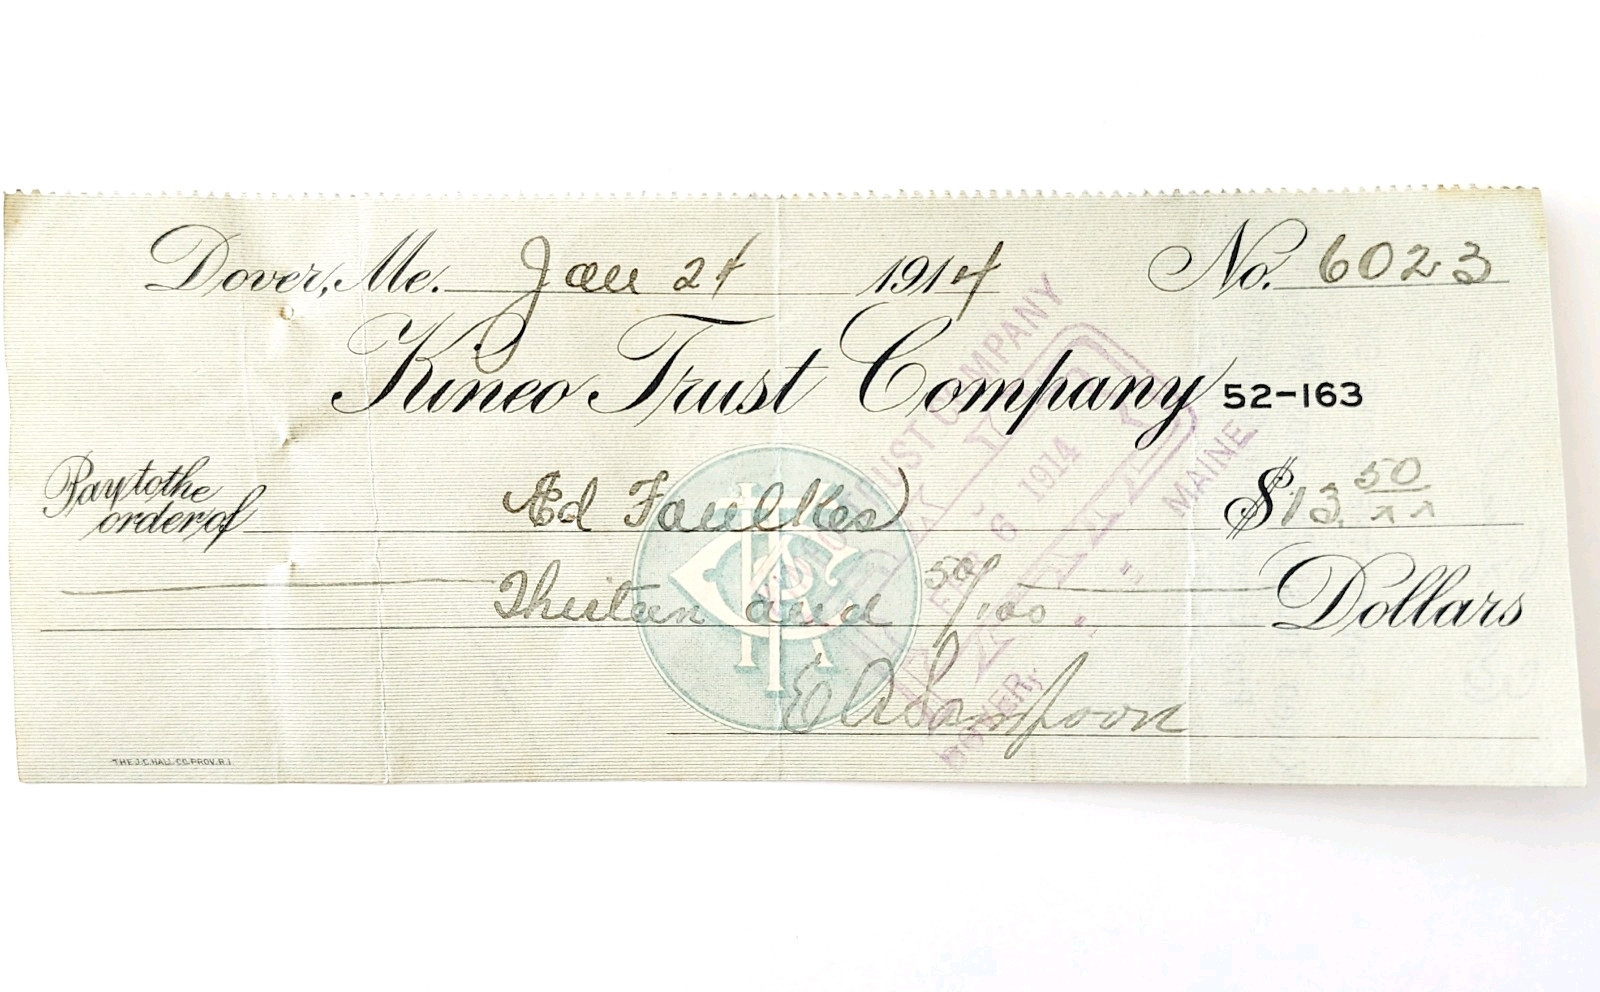 Dover, Me. Jan 24 1914 No. 6023
Kineo Trust Company 52-163
Pay to the order of Ed Faulkes $13.50/xx
Thirteen and 50/100 Dollars
E A Sampson
THE J.C. HALL CO. PROV. R.I.
KTC
KINEO TRUST COMPANY
PAID
FEB 6 1914
DOVER, " " MAINE